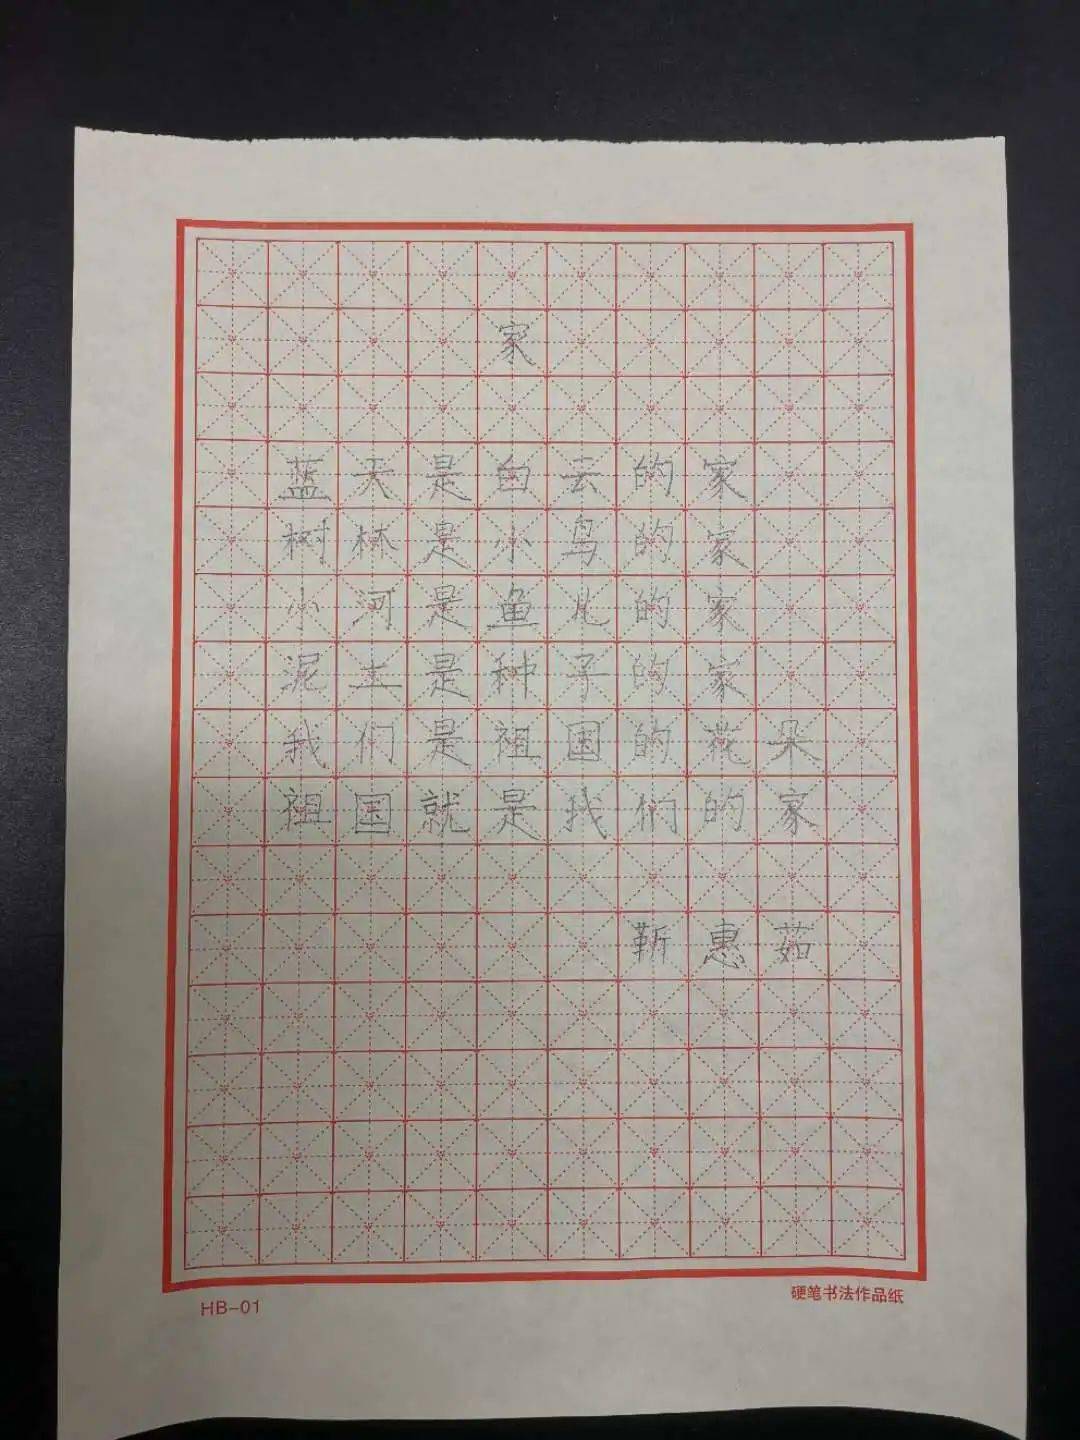 家
蓝天是白云的家
树林是小鸟的家
小河是鱼儿的家
泥土是种子的家
我们是祖国的花朵
祖国就是我们的家
靳惠茹
HB-01
硬笔书法作品纸